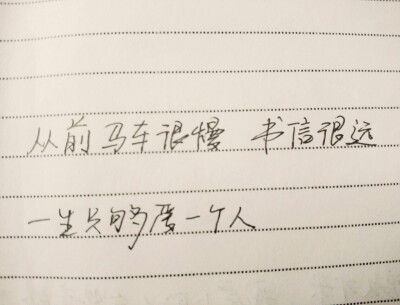 从前马车很慢 书信很远
一生只够爱一个人